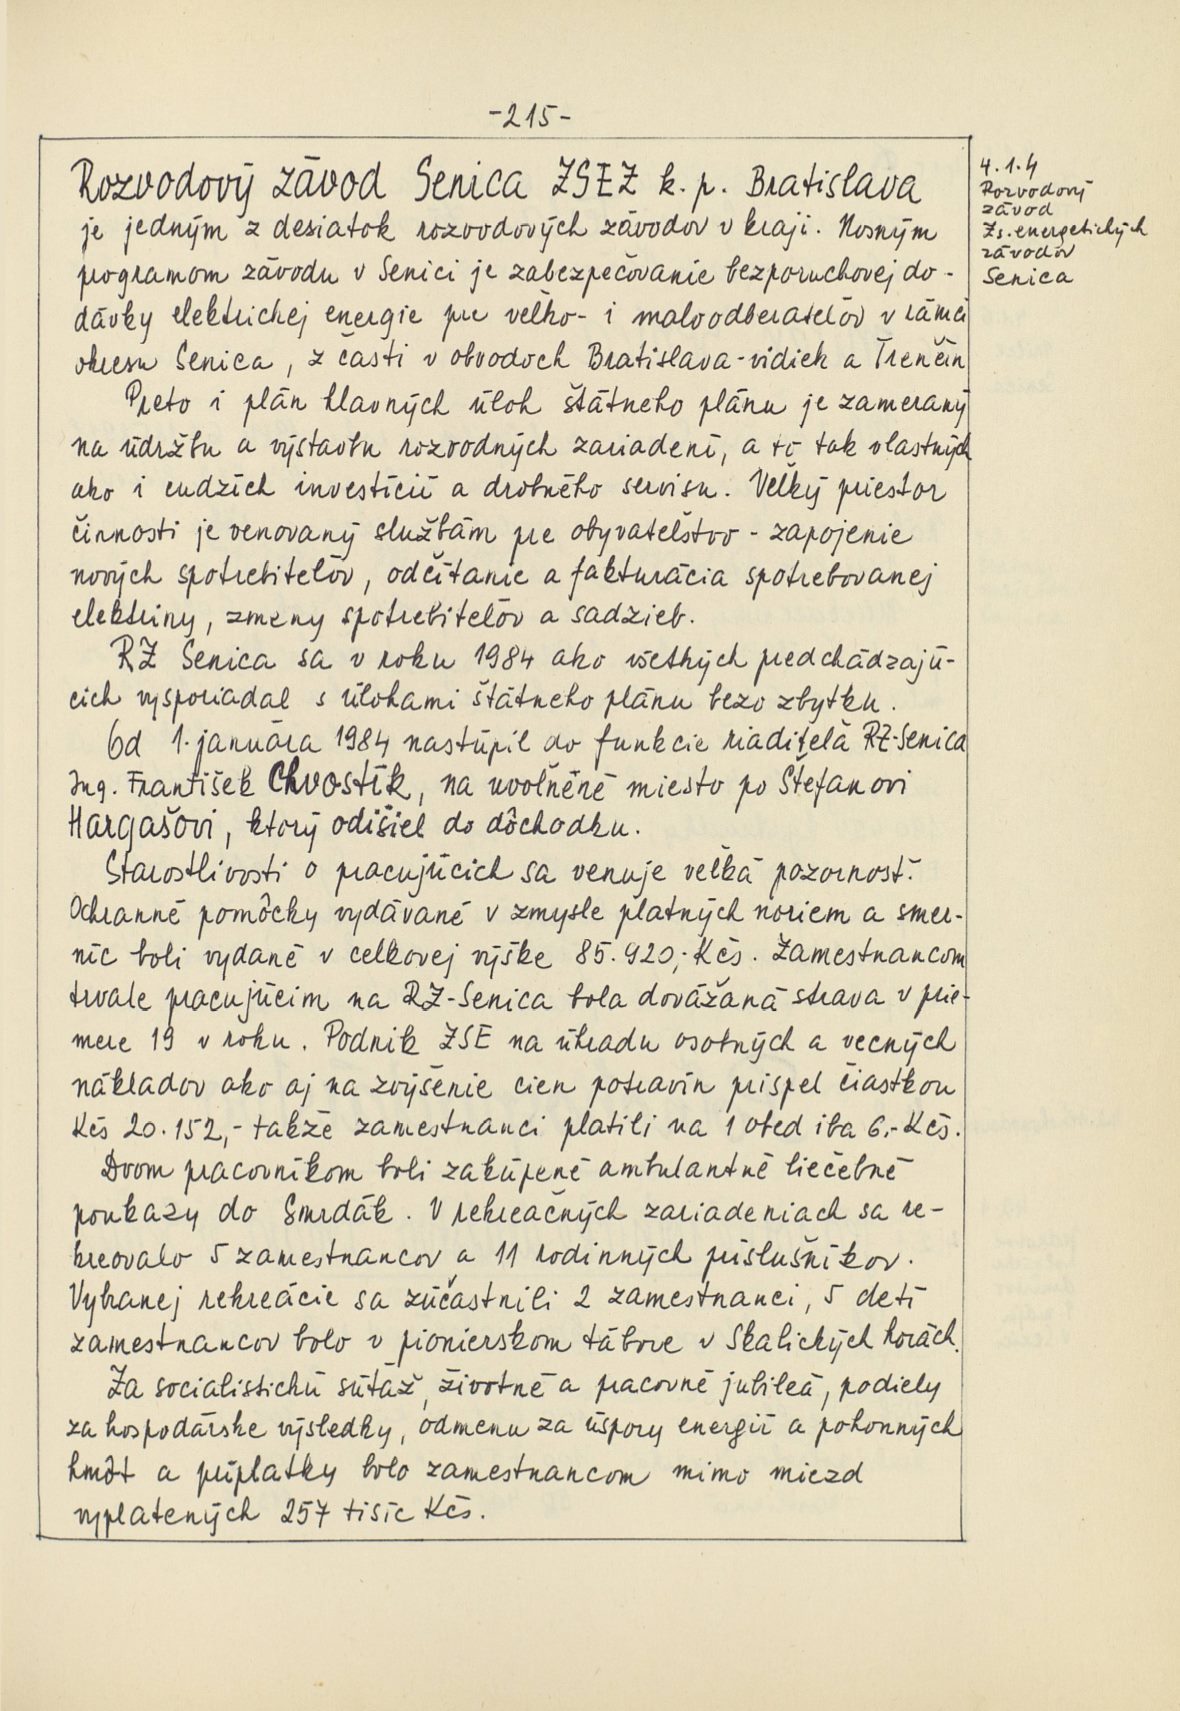 -215-
Rozvodový závod Senica ZSEZ k. p. Bratislava
je jedným z desiatok rozvodových závodov v kraji. Nosným
programom závodu v Senici je zabezpečovanie bezporuchovej do-
dávky elektrickej energie pre veľko- i maloodberateľov v rámci
okresu Senica, z časti v obvodoch Bratislava-vidiek a Trenčín
Preto i plán hlavných úloh štátneho plánu je zameraný
na údržbu a výstavbu rozvodných zariadení, a to tak vlastných
ako i cudzích investícií a drobného servisu. Veľký priestor
činnosti je venovaný službám pre obyvateľstvo - zapojenie
nových spotrebiteľov, odčítanie a fakturácia spotrebovanej
elektriny, zmeny spotrebiteľov a sadzieb.
RZ Senica sa v roku 1984 ako všetkých predchádzajú-
cich vysporiadal s úlohami štátneho plánu bezo zbytku.
Od 1. januára 1984 nastúpil do funkcie riaditeľa RZ-Senica
Ing. František Chvostík, na uvoľnéné miesto po Štefanovi
Hargašovi, ktorý odišiel do dôchodku.
Starostlivosti o pracujúcich sa venuje veľká pozornosť.
Ochranné pomôcky vydávané v zmysle platných noriem a smer-
níc boli vydané v celkovej výške 85.920,- Kčs. Zamestnancom
trvale pracujúcim na RZ-Senica bola dovážaná strava v prie-
mere 19 v roku. Podnik ZSE na úhradu osobných a vecných
nákladov ako aj na zvýšenie cien potravín prispel čiastkou
Kčs 20.152,- takže zamestnanci platili na 1 obed iba 6,- Kčs.
Dvom pracovníkom boli zakúpené ambulantné liečebné
poukazy do Smrdák. V rekreačných zariadeniach sa re-
kreovalo 5 zamestnancov a 11 rodinných príslušníkov.
Vybranej rekreácie sa zúčastnili 2 zamestnanci, 5 detí
zamestnancov bolo v pionierskom tábore v Skalických horách.
Za socialistickú súťaž, životné a pracovné jubileá, podiely
za hospodárske výsledky, odmenu za úspory energií a pohonných
hmôt a príplatky bolo zamestnancom mimo miezd
vyplatených 257 tisíc Kčs.
4.1.4
Rozvodový
závod
Zs. energetických
závodov
Senica